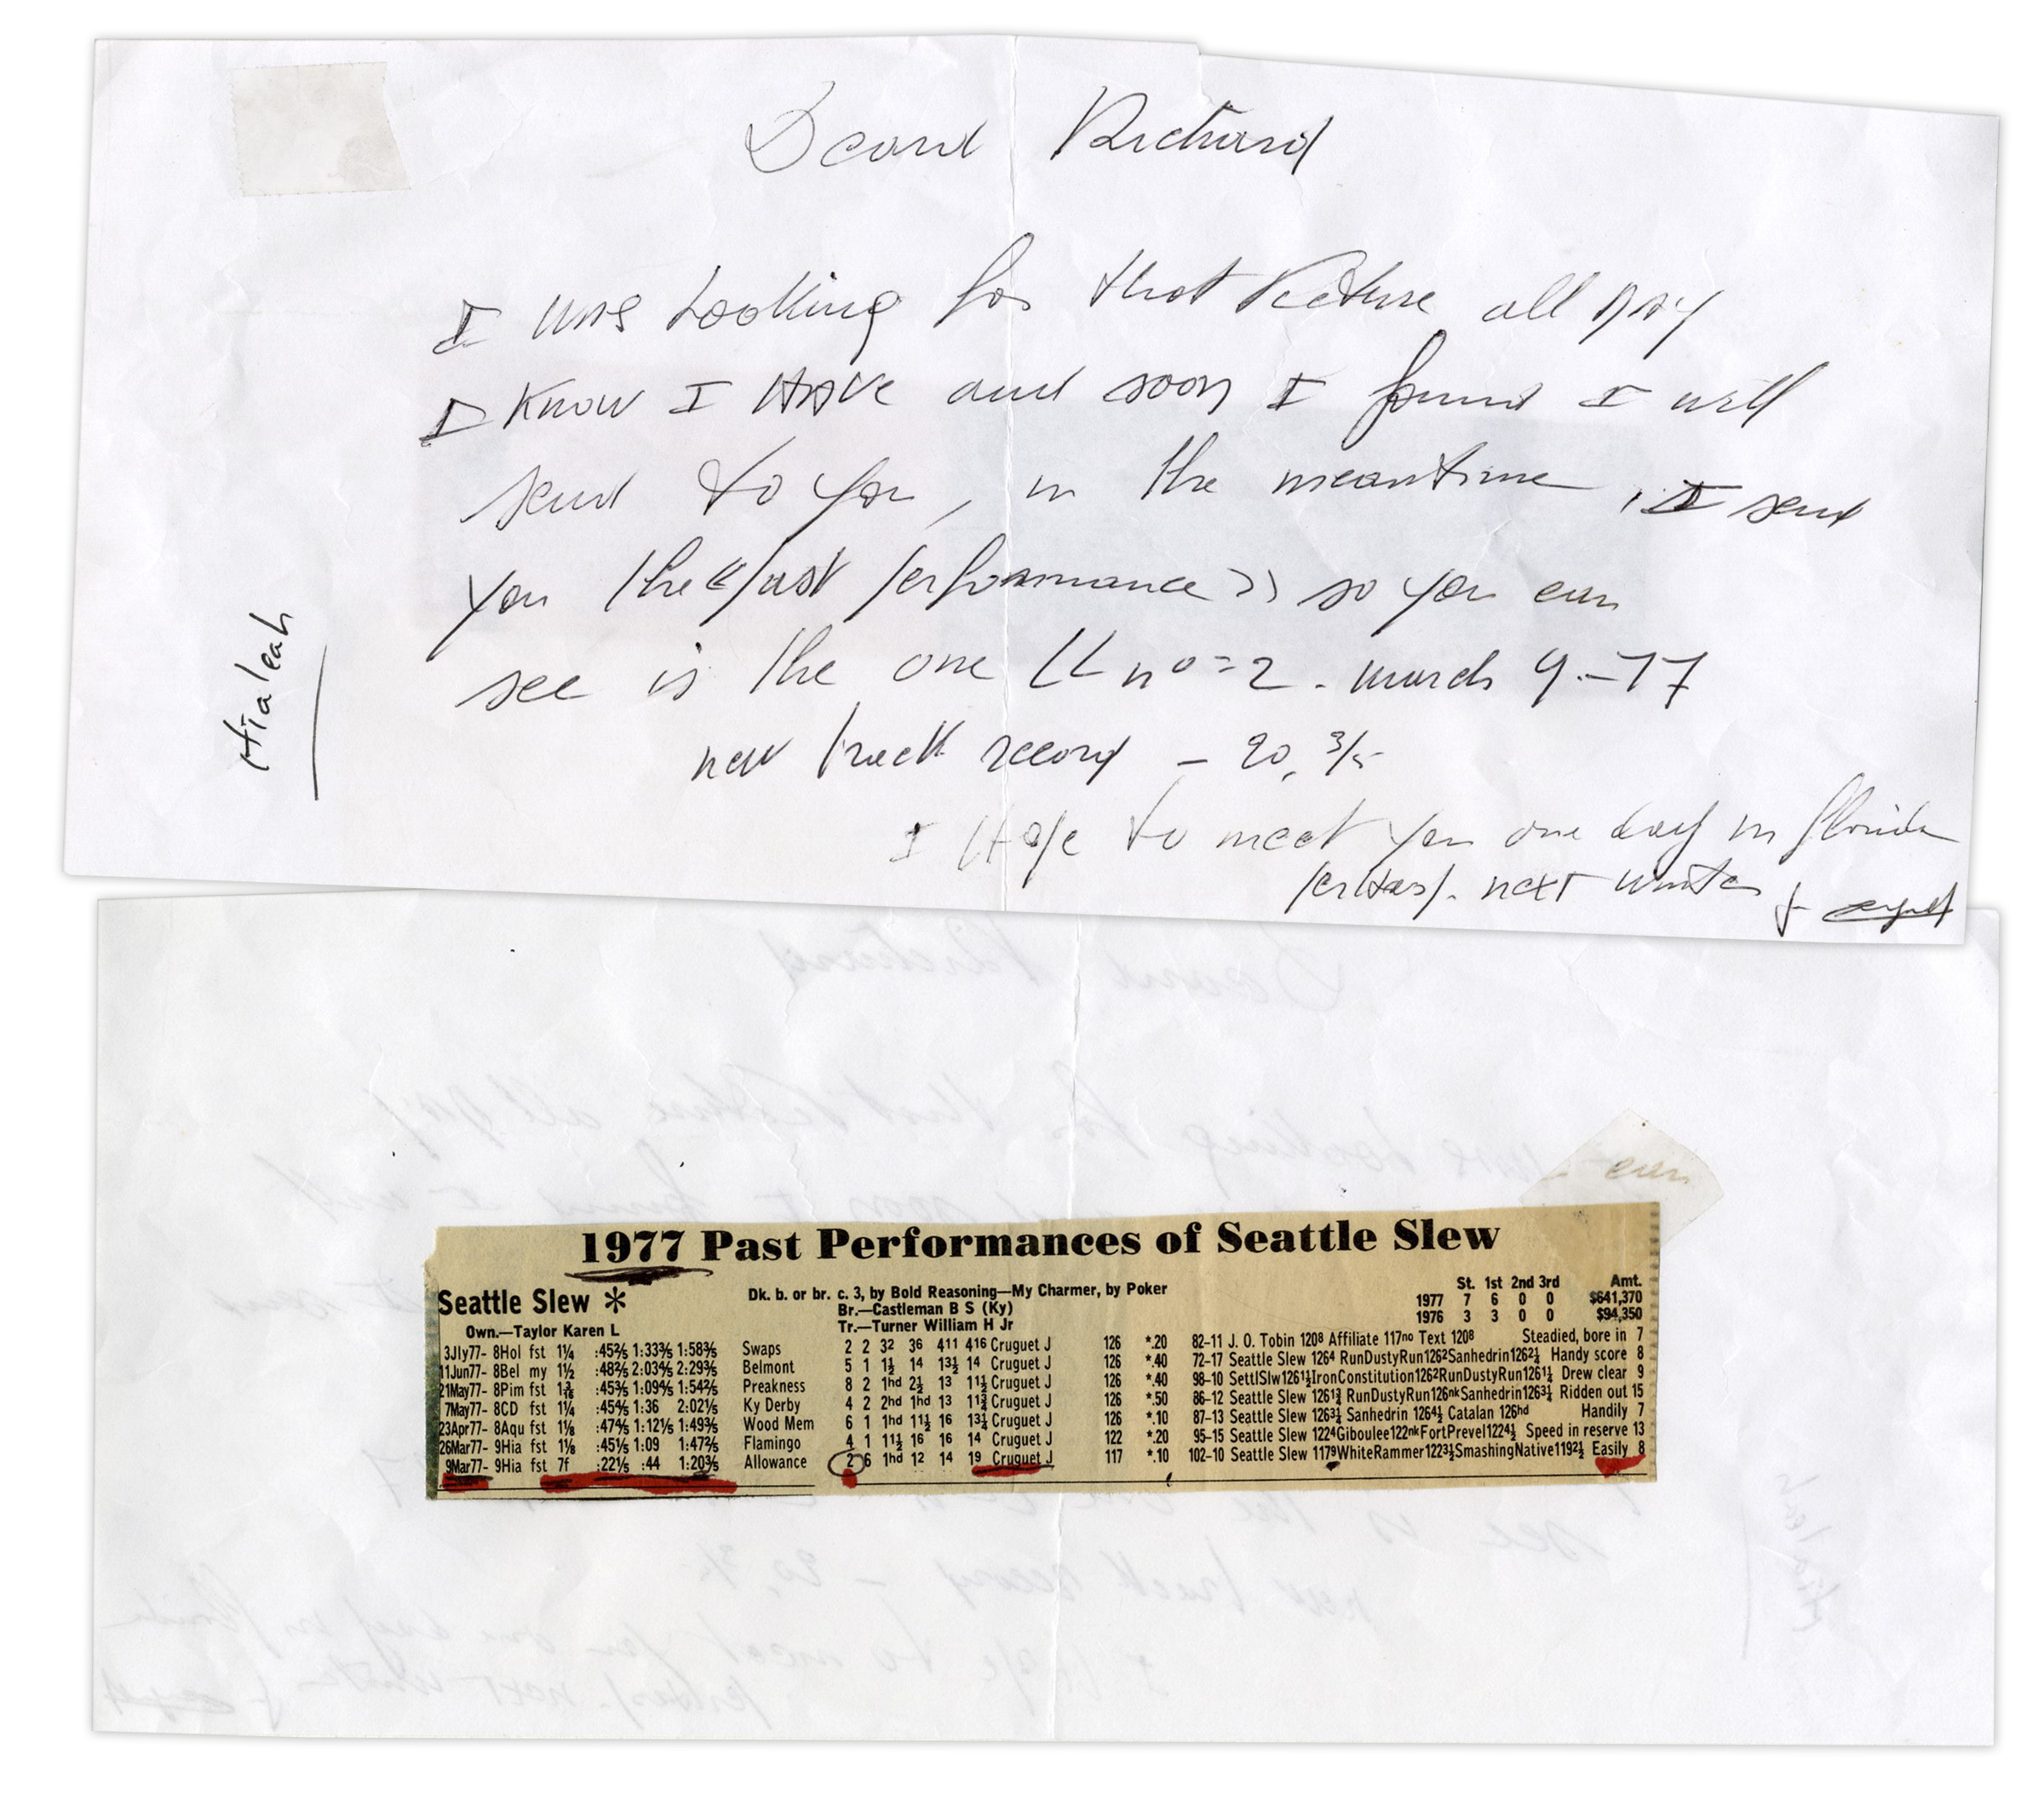 Deard Richard
I was Looking for that Picture all DAY
I KNOW I HAVE and soon I found I will
send to you, in the meantime, I send
you the << past performance >> so you can
see is the one << n° = 2. march 9.-77
new track record - 20, 3/5
Hialeah
I Hope to meet you one day in florida
perhaps. next winter
1977 Past Performances of Seattle Slew
Seattle Slew *
Own.—Taylor Karen L
Dk. b. or br. c. 3, by Bold Reasoning—My Charmer, by Poker
Br.—Castleman B S (Ky)
Tr.—Turner William H Jr
St. 1st 2nd 3rd Amt.
1977 7 6 0 0 $641,370
1976 3 3 0 0 $94,350
3Jly77- 8Hol fst 1¼ :45⅖ 1:33⅗ 1:58⅗ Swaps 2 2 3² 3⁶ 4¹¹ 4¹⁶ Cruguet J 126 *.20 82-11 J. O. Tobin 120⁸ Affiliate 117ⁿᵒ Text 120⁸ Steadied, bore in 7
11Jun77- 8Bel my 1½ :48⅖ 2:03⅘ 2:29⅗ Belmont 5 1 1½ 1⁴ 13½ 1⁴ Cruguet J 126 *.40 72-17 Seattle Slew 126⁴ RunDustyRun126²Sanhedrin1262½ Handy score 8
21May77- 8Pim fst 1 3/16 :45⅗ 1:09⅘ 1:54⅖ Preakness 8 2 1hd 2½ 1³ 11½ Cruguet J 126 *.40 98-10 SettlSlw1261½IronConstitution126²RunDustyRun1261½ Drew clear 9
7May77- 8CD fst 1¼ :45⅘ 1:36 2:02⅕ Ky Derby 4 2 2hd 1hd 1³ 11¾ Cruguet J 126 *.50 86-12 Seattle Slew 1261¾ RunDustyRun126nkSanhedrin1263¼ Ridden out 15
23Apr77- 8Aqu fst 1⅛ :47⅘ 1:12⅕ 1:49⅗ Wood Mem 6 1 1hd 11½ 1⁶ 13¼ Cruguet J 126 *.10 87-13 Seattle Slew 1263¼ Sanhedrin 1264½ Catalan 126hd Handily 7
26Mar77- 9Hia fst 1⅛ :45⅕ 1:09 1:47⅖ Flamingo 4 1 11½ 1⁶ 1⁶ 1⁴ Cruguet J 122 *.20 95-15 Seattle Slew 122⁴Giboulee122nkFortPrevel1224½ Speed in reserve 13
9Mar77- 9Hia fst 7f :22⅕ :44 1:20⅗ Allowance 2 6 1hd 1² 1⁴ 1⁹ Cruguet J 117 *.10 102-10 Seattle Slew 117⁹WhiteRammer1223½SmashingNative1192½ Easily 8